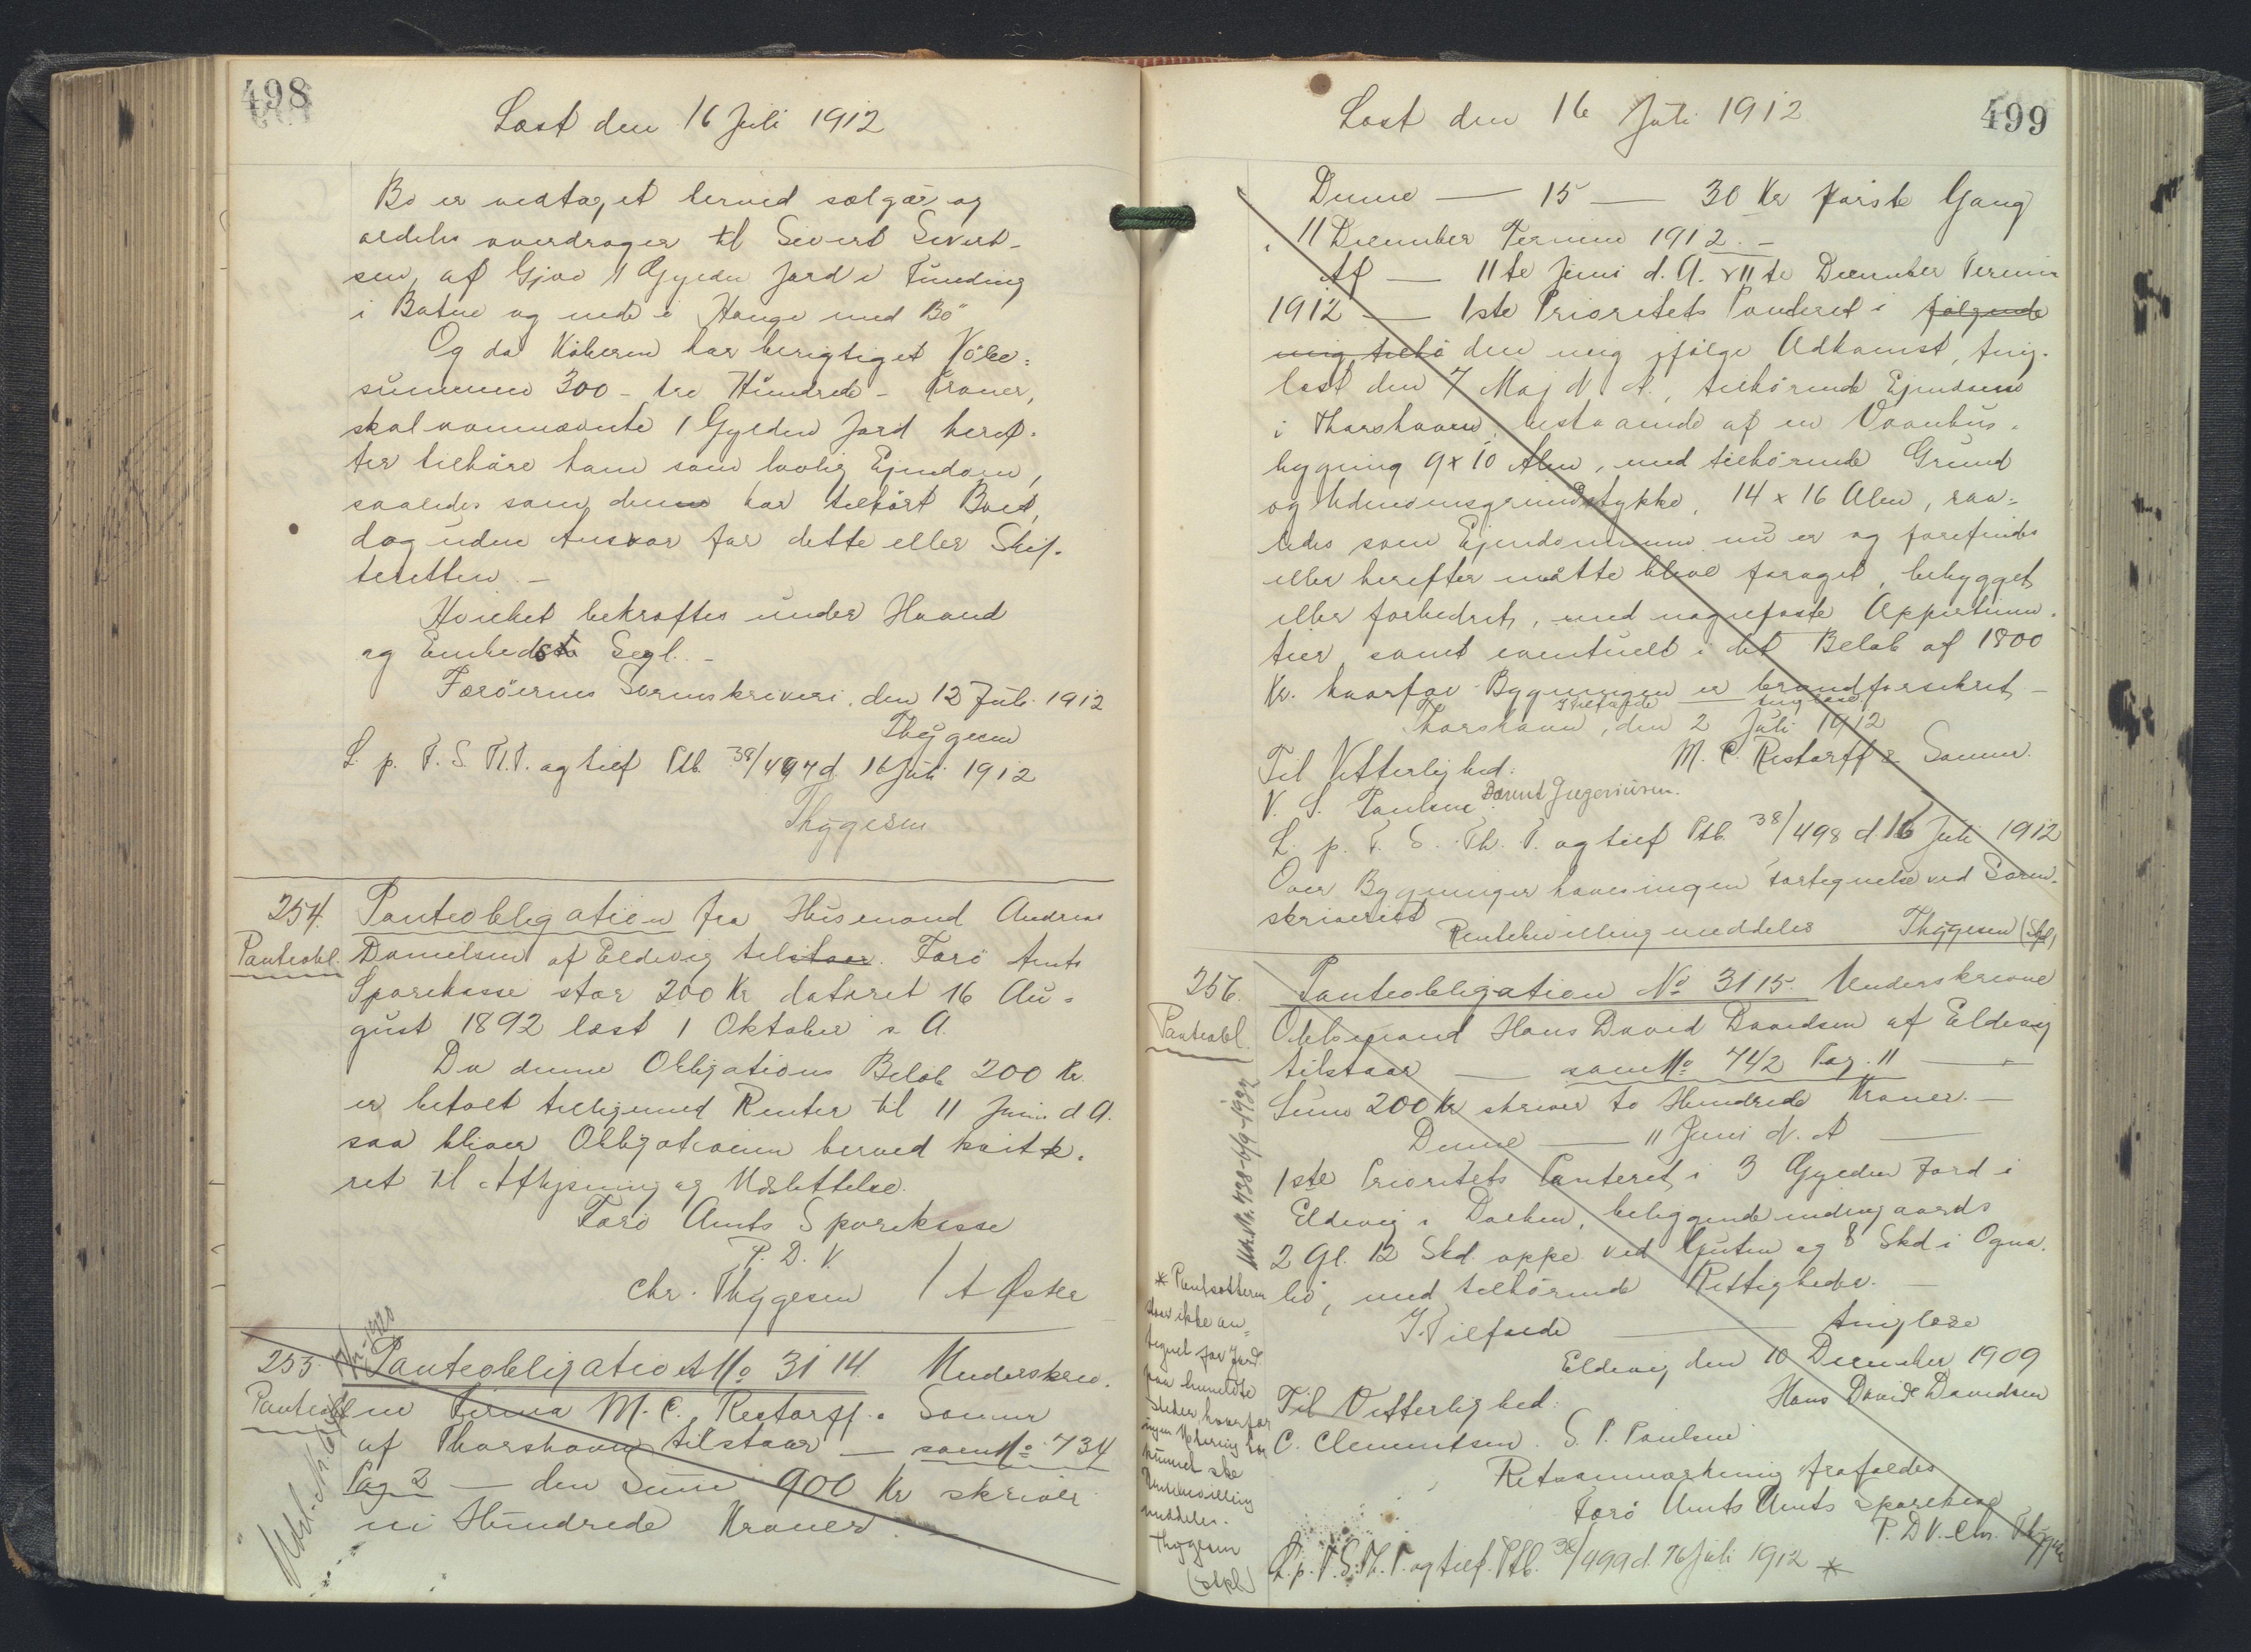 498
Læst den 16 Juli 1912
Bo er vedtaget herved sælger og
aldeles overdrager til Sivert Sivert-
sen, af Gjov 1 Gylden Jord i Funding
i Botne og nede i Hange med Bö
Og da Köberen har berigtiget Köbe-
summen 300 - tre Hundrede - Kroner,
skal ovennævnte 1 Gylden Jord heref-
ter tilhöre ham som lovlig Ejendom,
saaledes som denne har tilhört Boet,
dog uden Ansvar for dette eller Skif-
teretten. -
Hvilket bekræftes under Haand
og Embeds Segl. -
Færöernes Sorenskriveri, den 12 Juli 1912
Thygesen
L. p. F. S. Th. T. og tilf Ptb. 38/497 d 16 Juli 1912
Thygesen
254. Panteobligation fra Husmand Andreas
Panteobl. Danielsen af Eldevig til Færö Amts
Sparekasse stor 200 Kr dateret 16 Au-
gust 1892 læst 1 Oktober s. A.
Da denne Obligations Beløb 200 Kr.
er betalt tilligemed Renter til 11 Juni d A.
saa bliver Obligationen herved kvitte-
ret til Aflysning og Udslettelse.
Færö Amts Sparekasse
P. D. V.
Chr. Thygesen / A Øster
255. Panteobligation No 3114. Underskrev-
Panteobl. ne Firma M. C. Restorff & Sønner
af Thorshavn tilstaar — som No 734
Pag 2 — den Sum 900 Kr skriver
ni Hundrede Kroner. —
499
Læst den 16 Juli 1912
Denne — 15 — 30 Kr første Gang
i 11 December Termin 1912. -
Af — 11te Juni d. A. & 11te December Termin
1912 — 1ste Prioritets Panteret i følgende
mig tilhö den mig ifølge Adkomst, ting-
læst den 7 Maj d. A., tilhörende Ejendom
i Thorshavn, bestaaende af en Vaanhus-
bygning 9 x 10 Alen, med tilhörende Grund
og Udenomsgrundstykke, 14 x 16 Alen, saa-
ledes som Ejendommen nu er og forefindes
eller herefter måtte blive foröget, bebygget
eller forbedret, med nagelfaste Appertinen-
tier samt eventuelt i det Beløb af 1800
Kr. hvorfor Bygningen er brandforsikret -
I Tilfælde — tinglæse
Thorshavn, den 2 Juli 1912
Til Vitterlighed: M. C. Restorff & Sønner.
V. S. Paulsen Dorent Joegvensen.
L. p. F. S. Th. T. og tilf Ptb. 38/498 d. 16 Juli 1912
Over Bygninger haves ingen Fortegnelse ved Soren-
skriveriet
Rentebevilling meddeles Thygesen (Skpl)
256. Panteobligation No 3115. Underskrevne
Panteobl. Odelsmand Hans David Davidsen af Eldevig
tilstaar — som No 742 Pag. 11 —
Sum 200 Kr skriver to Hundrede Kroner. —
Denne — 11 Juni d. A —
1ste Prioritets Panteret i 3 Gylden Jord i
Eldevig i Dalken, beliggende indengaards
2 Gl. 12 Skd. oppe ved Gjuten og 8 Skd i Ogna-
bö, med tilhörende Rettigheder. —
I Tilfælde — tinglæse
Eldevig den 10 December 1909
Til Vitterlighed: Hans David Davidsen
C. Clementsen. S. P. Paulsen
Retsanmærkning frafaldes
Færö Amts Amts Sparekasse
P. D V. Chr. Thygesen
L. p. F. S. Th. T. og tilf. Ptb. 38/499 d. 16 Juli 1912 *
* Pantsætteren
staar ikke an-
tegnet for Jord
paa anmeldte
Steder, hvorfor
ingen Notering har
kunnet ske
Rentebevilling
meddeles.
Thygesen
(Skpl)